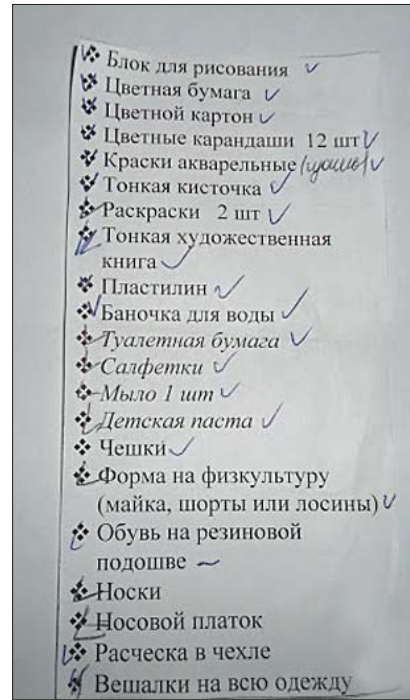 ❖ Блок для рисования ✓
❖ Цветная бумага ✓
❖ Цветной картон ✓
❖ Цветные карандаши 12 шт ✓
❖ Краски акварельные (гуашь) ✓
❖ Тонкая кисточка ✓
❖ Раскраски 2 шт ✓
❖ Тонкая художественная
книга ✓
❖ Пластилин ✓
❖ Баночка для воды ✓
❖ Туалетная бумага ✓
❖ Салфетки ✓
❖ Мыло 1 шт ✓
❖ Детская паста ✓
❖ Чешки ✓
❖ Форма на физкультуру
(майка, шорты или лосины) ✓
❖ Обувь на резиновой
подошве ~
❖ Носки
❖ Носовой платок
❖ Расческа в чехле
❖ Вешалки на всю одежду